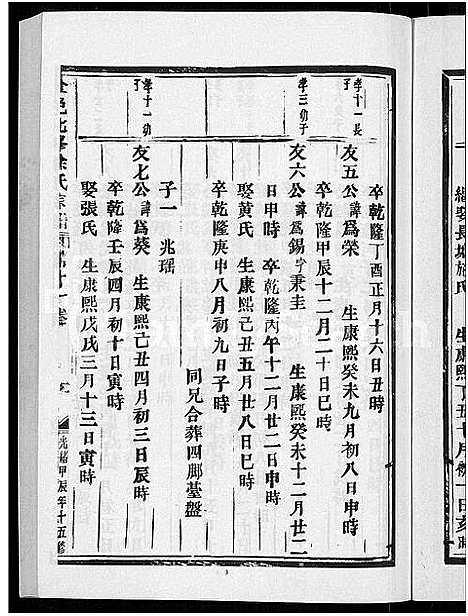 繼娶長塘施氏 生康熙丁五十月初一日亥時
卒乾隆丁酉正月十六日丑時
孝十一長子
友五公諱爲榮 生康熙癸未九月初八日申時
卒乾隆甲辰十二月二十日巳時
孝三幼子
友六公諱爲錫字秉圭 生康熙癸未十二月廿二
日申時 卒乾隆丙午十二月廿二日申時
娶黄氏 生康熙己丑五月廿八日巳時
卒乾隆庚申八月初九日子時
同兄合葬四脚臺盤
子一 兆瑶
孝十一幼子
友七公諱爲葵 生康熙己丑四月初三日辰時
卒乾隆壬辰四月初十日寅時
娶張氏 生康熙戊戌三月十三日寅時
北峯徐氏宗譜
光緒甲辰年十五修